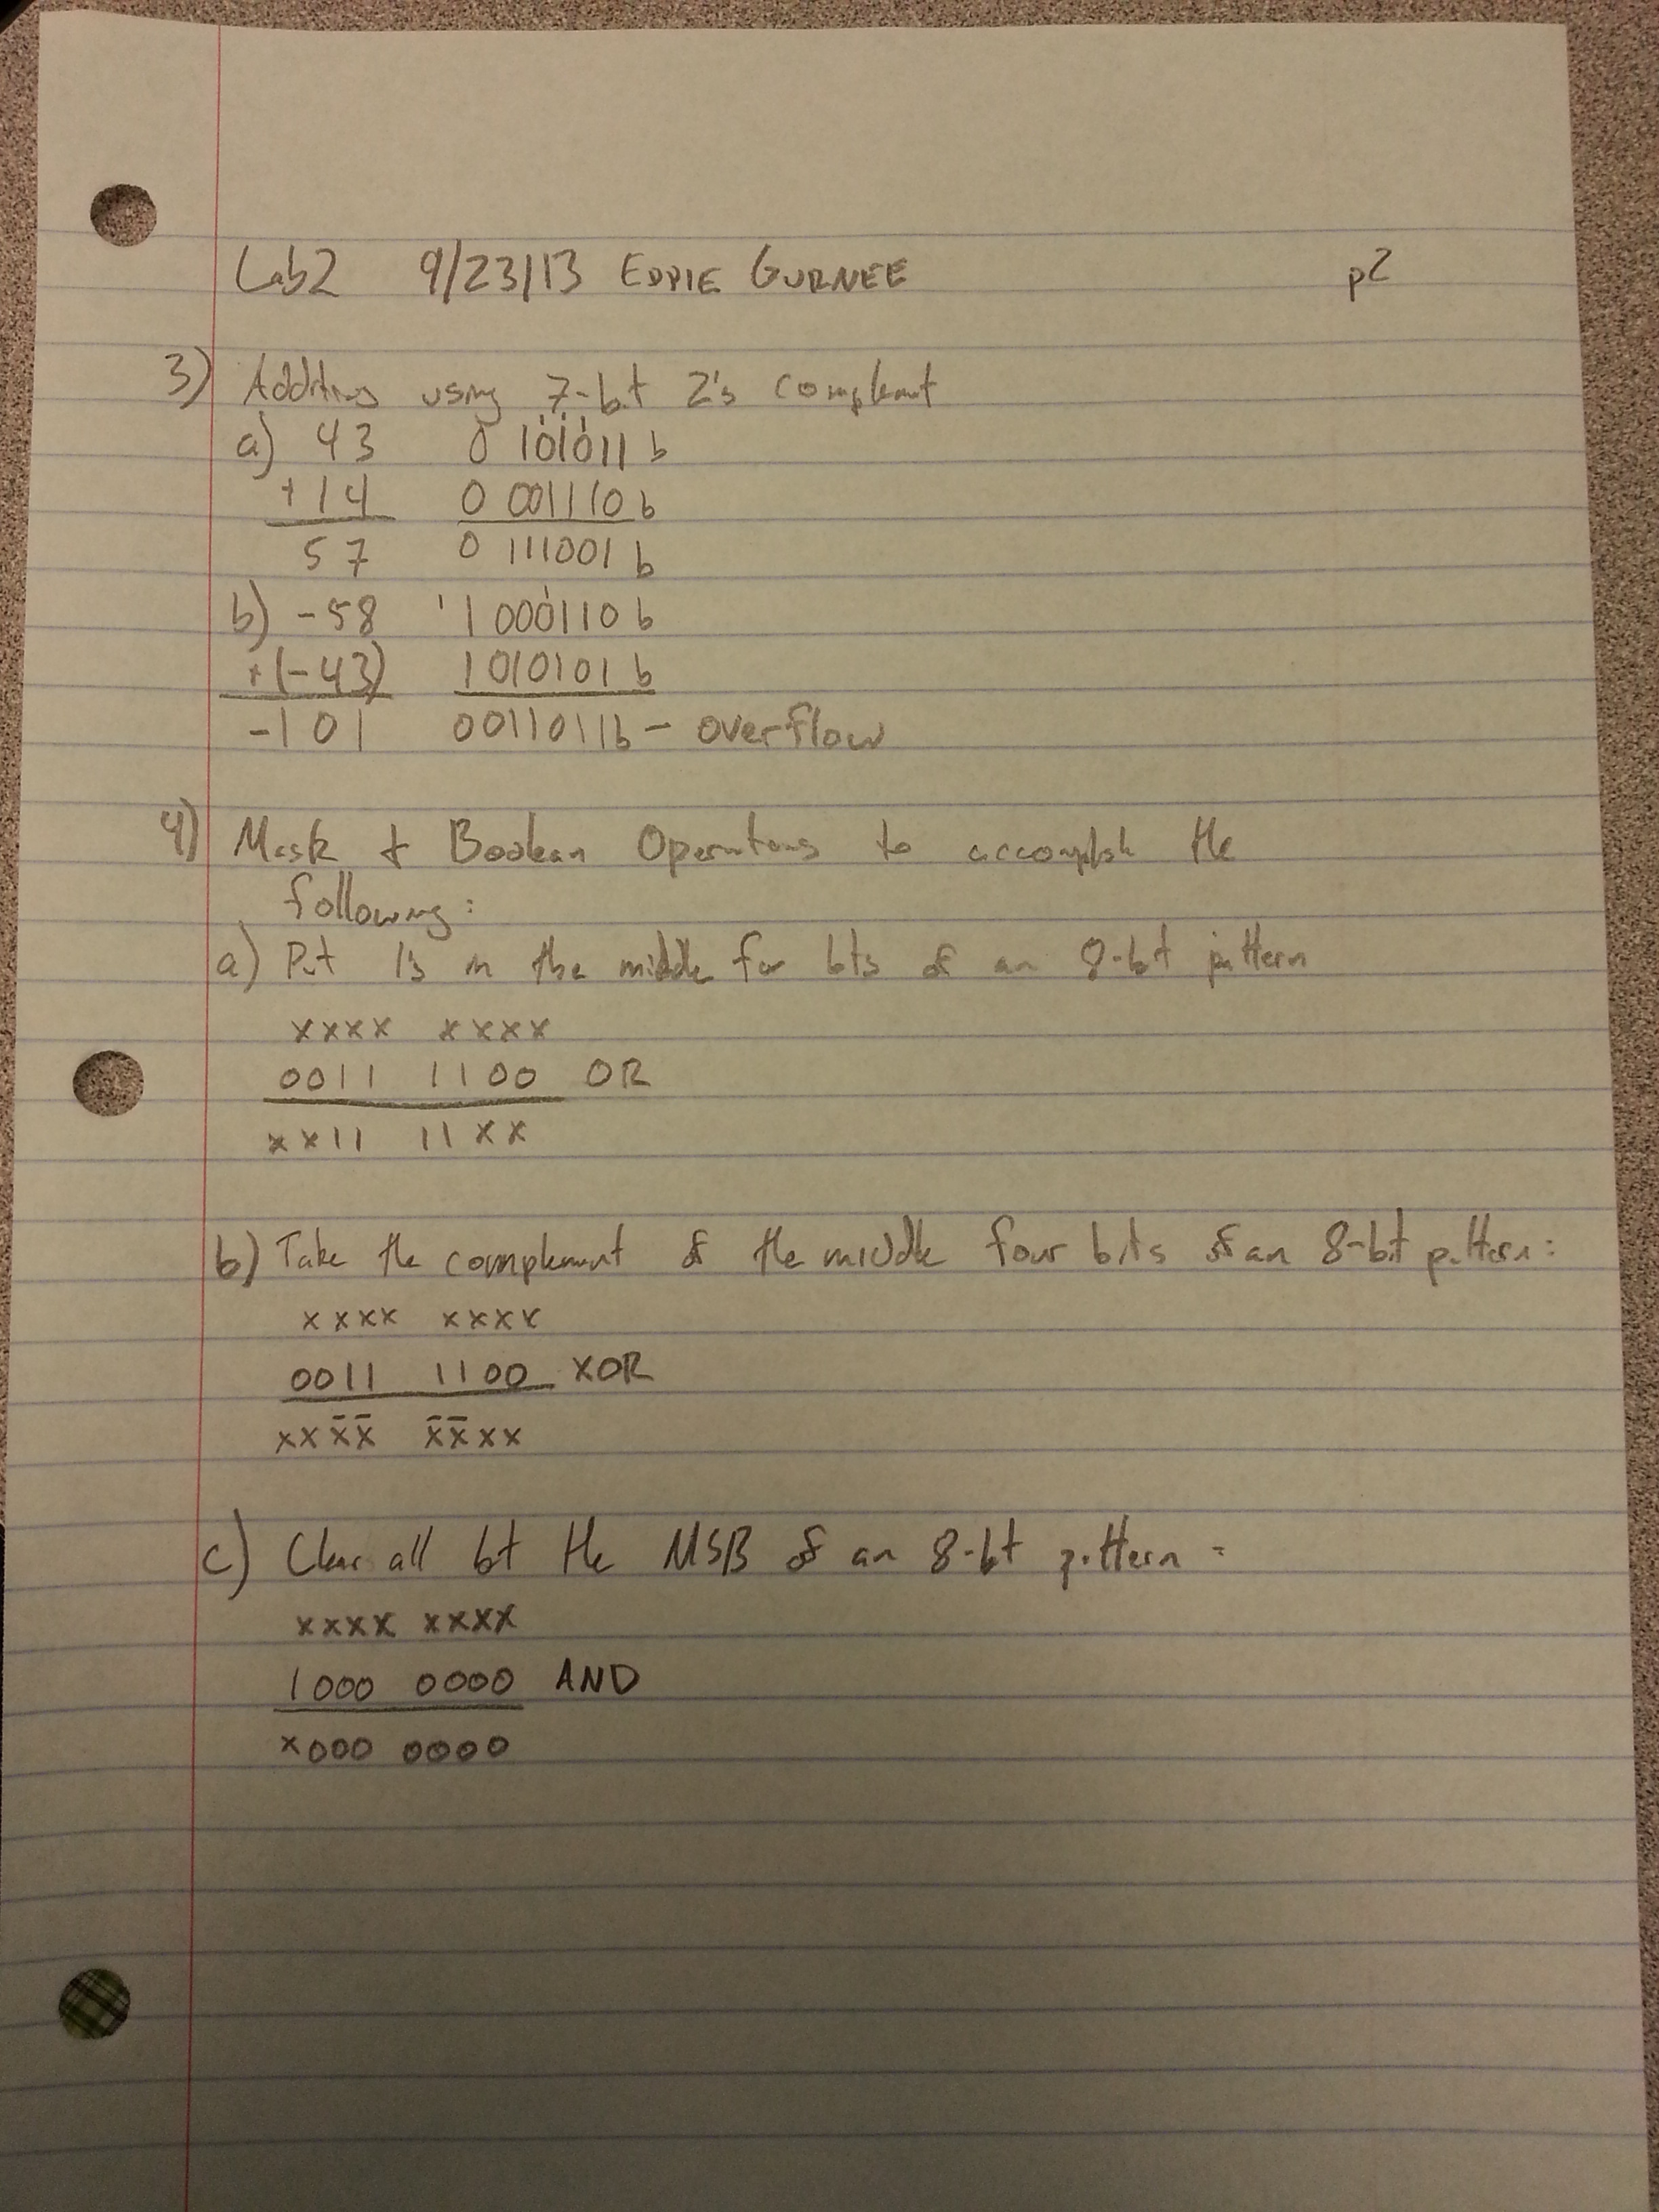 Lab2 9/23/13 EDDIE GURNEE p2
3) Addition using 7-bit 2's complement
a) 43 0 101011 b
+14 0 001110 b
57 0 111001 b
b) -58 1 000110 b
+(-43) 1010101 b
-101 0011011b - overflow
4) Mask & Boolean Operations to accomplish the
following:
a) Put 1's in the middle four bits of an 8-bit pattern
xxxx xxxx
0011 1100 OR
xx11 11xx
b) Take the complement of the middle four bits of an 8-bit pattern:
xxxx xxxx
0011 1100 XOR
xxx̄x̄ x̄x̄xx
c) Clear all but the MSB of an 8-bit pattern =
xxxx xxxx
1000 0000 AND
x000 0000